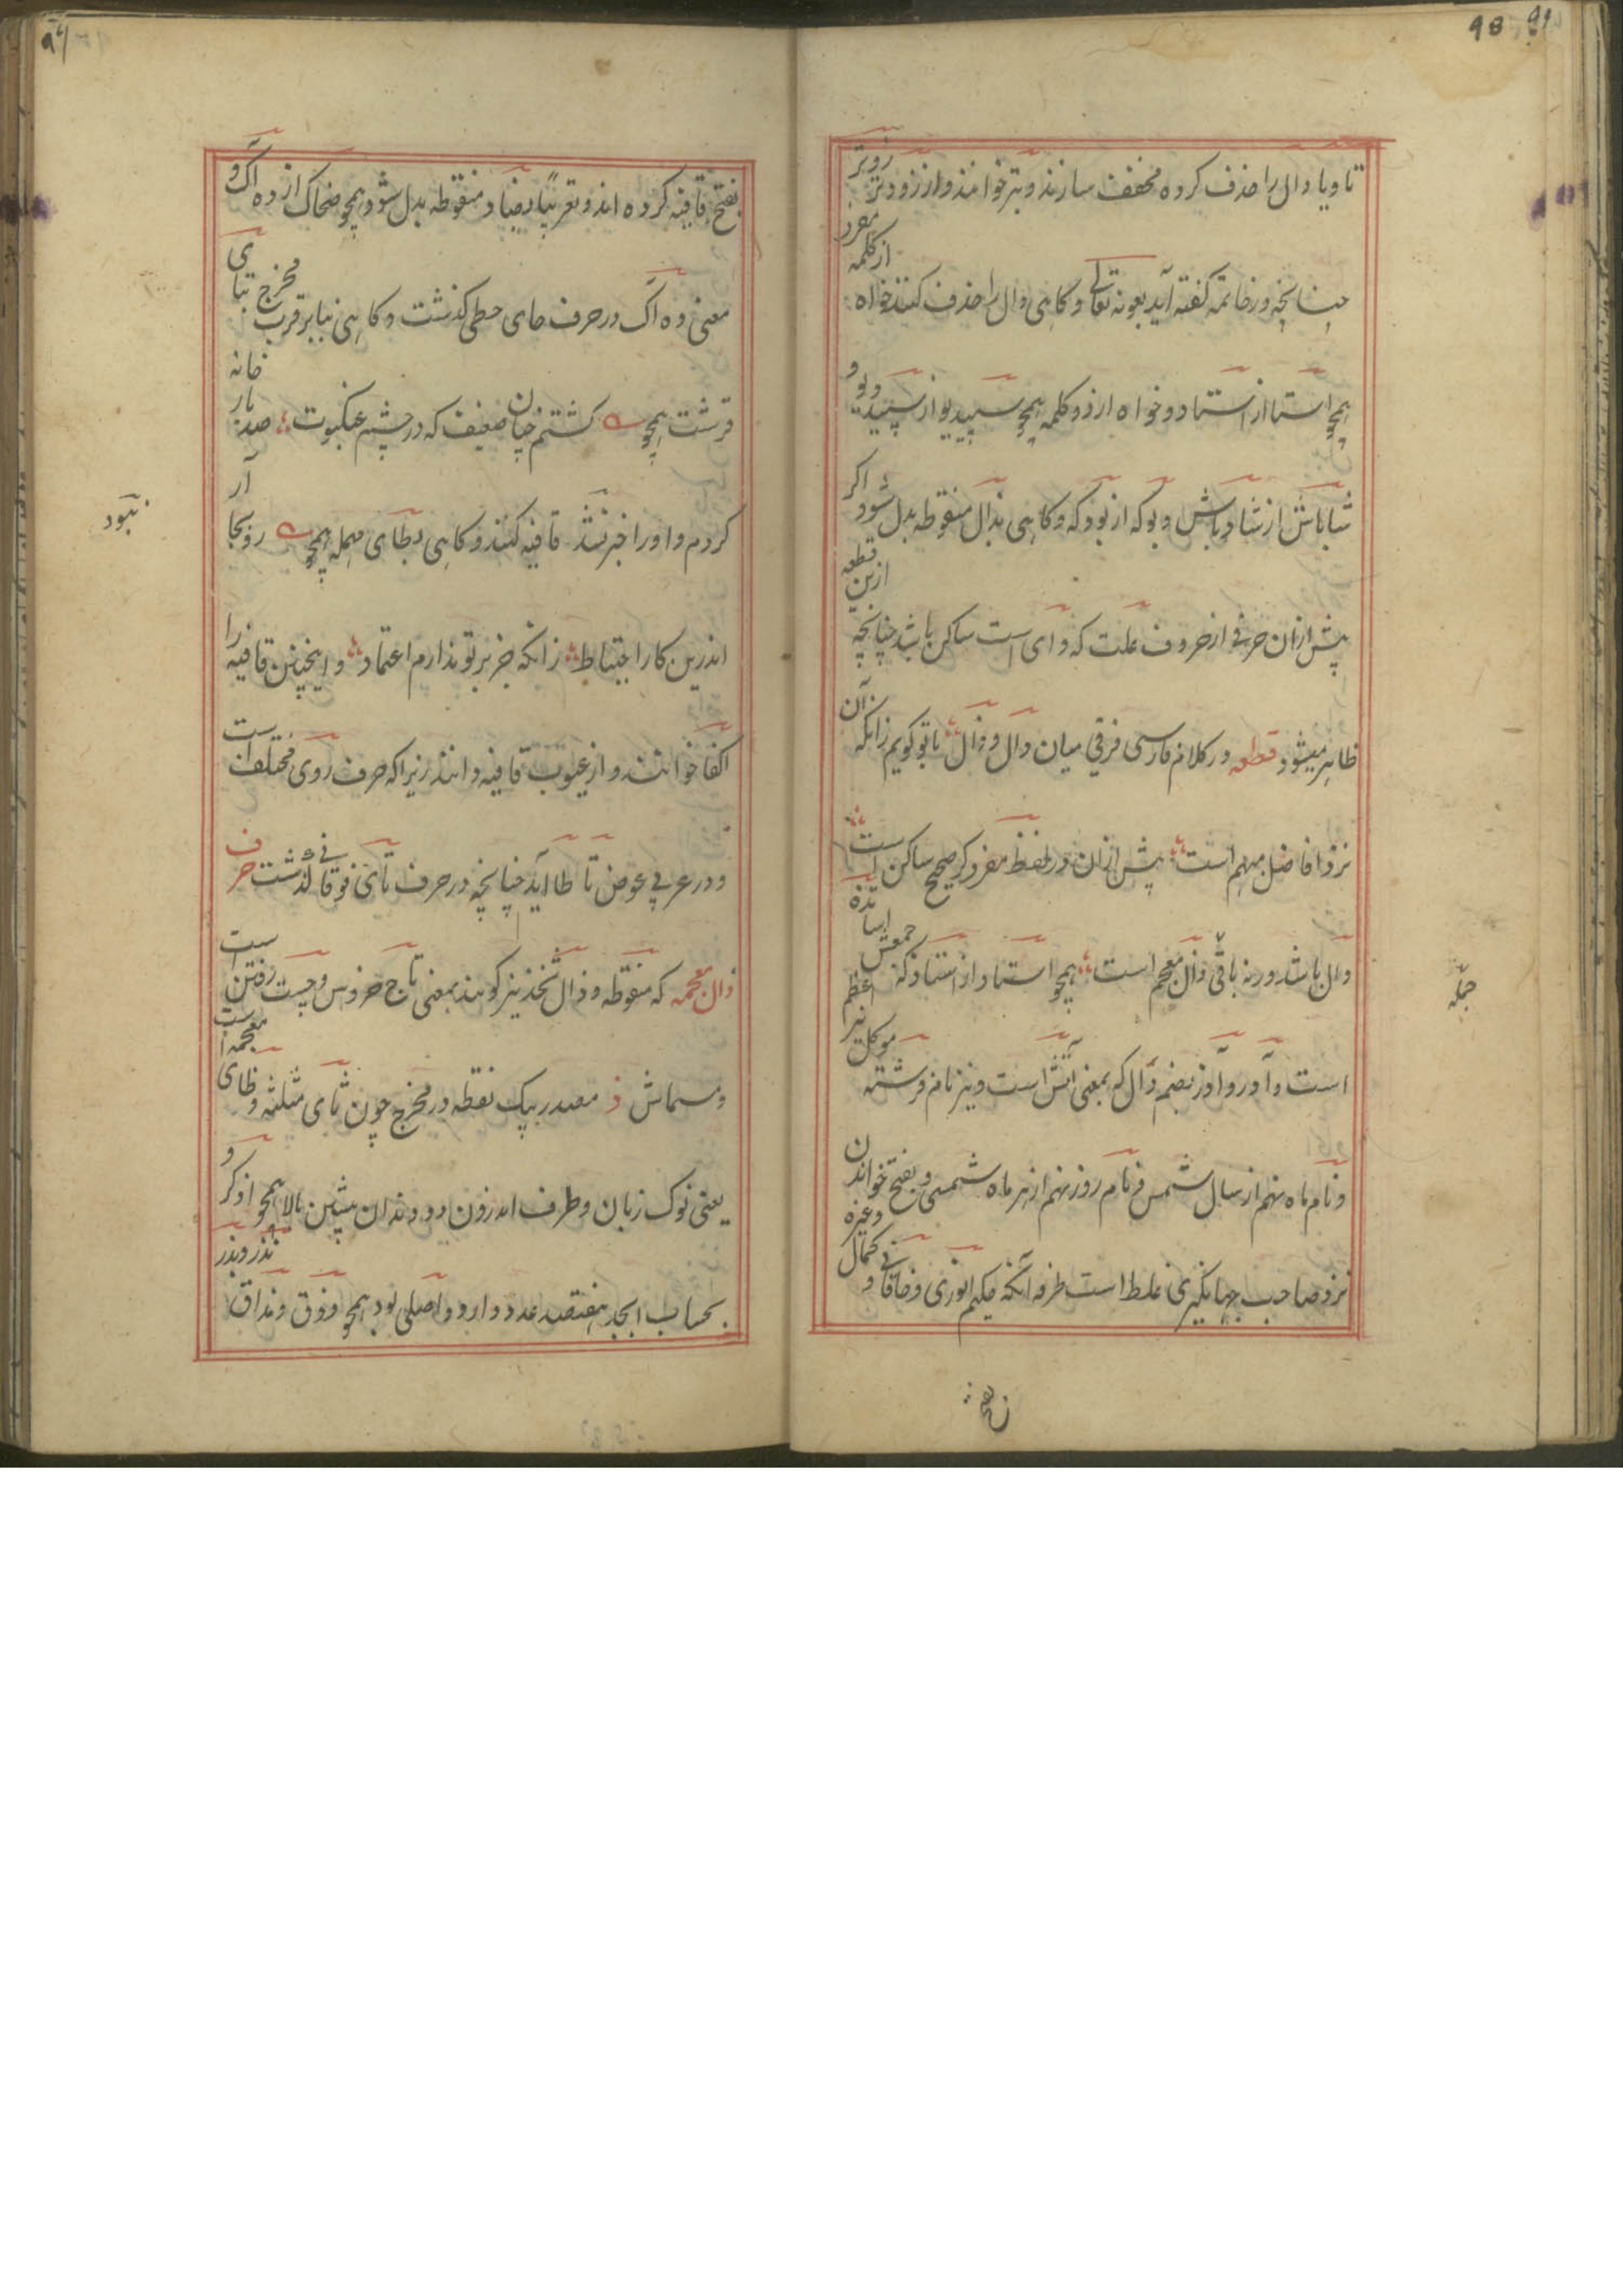 تا و یا دال را حذف کرده مخفف سازند و بتر خوانند و از زودتر زوتر
چنانچه در خاتمه گفته آید بعونه تعالی و کاهی دال را حذف کنند خواه از کلمه مفرد
همچو استا از استاد و خواه از دو کلمه همچو سپیدیو از سپید دیو و
شاباش از شادباش و بوکه از بودکه و کاهی بذال منقوطه بدل شود اکر
پیش ازان حرفی از حروف علت که وای است ساکن باشد چنانچه ازین قطعه
ظاهر میشود قطعه در کلام فارسی فرقی میان دال و ذال با تو کویم زانکه آن
نزد افاضل مبهم است پیش ازان در لفظ مفرد کر صحیح ساکن است
دال باشد ورنه باقی ذال معجم است همچو استاد از استاد که جمعش اساتذه
است و آدر و آذر بضم دال که بمعنی آتش است و نیز نام فرشته موکل نیر اعظم
و نام ماه نهم از سال شمسی و نام روز نهم از هر ماه شمسی و بفتح خواندن
نزد صاحب جهانکیری غلط است طرفه آنکه حکیم انوری و خاقانی و کمال وغیره
جمله
بفتح قافیه کرده اند و تعریبًا بضاد منقوطه بدل شود همچو ضحاک از ده آک و
معنی ده آک در حرف حای حطی کذشت و کاهی بنابر قرب مخرج بتای
قرشت همچو کشتم چنان ضعیف که در چشم عنکبوت صد بار خانه
کردم و او را خبر نشد قافیه کنند و کاهی بطای مهمله همچو رو بجا آر
اندرین کار احتیاط زانکه جز بر تو ندارم اعتماد و اینچنین قافیه را
اکفا خوانند و از عیوب قافیه دانند زیرا که حرف روی مختلف است
و در عربی عوض تا طا آید چنانچه در حرف تای فوقانی گذشت حرف
ذال معجمه که منقوطه و ذال ثخذ نیز کویند بمعنی تاج خروس و چست رفتن است
و مسماش ذ مصدر بیک نقطه در مخرج چون ثای مثلثه و ظای معجمه است
یعنی نوک زبان و طرف اندرون دو دندان پیشین بالا همچو اذکر و
بحساب ابجد هفتصد عدد دارد و اصلی بود همچو ذوق و مذاق نذر و بذر
نبود